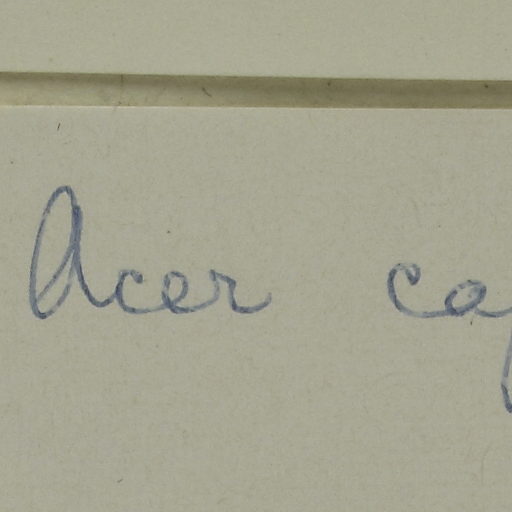 Acer cap